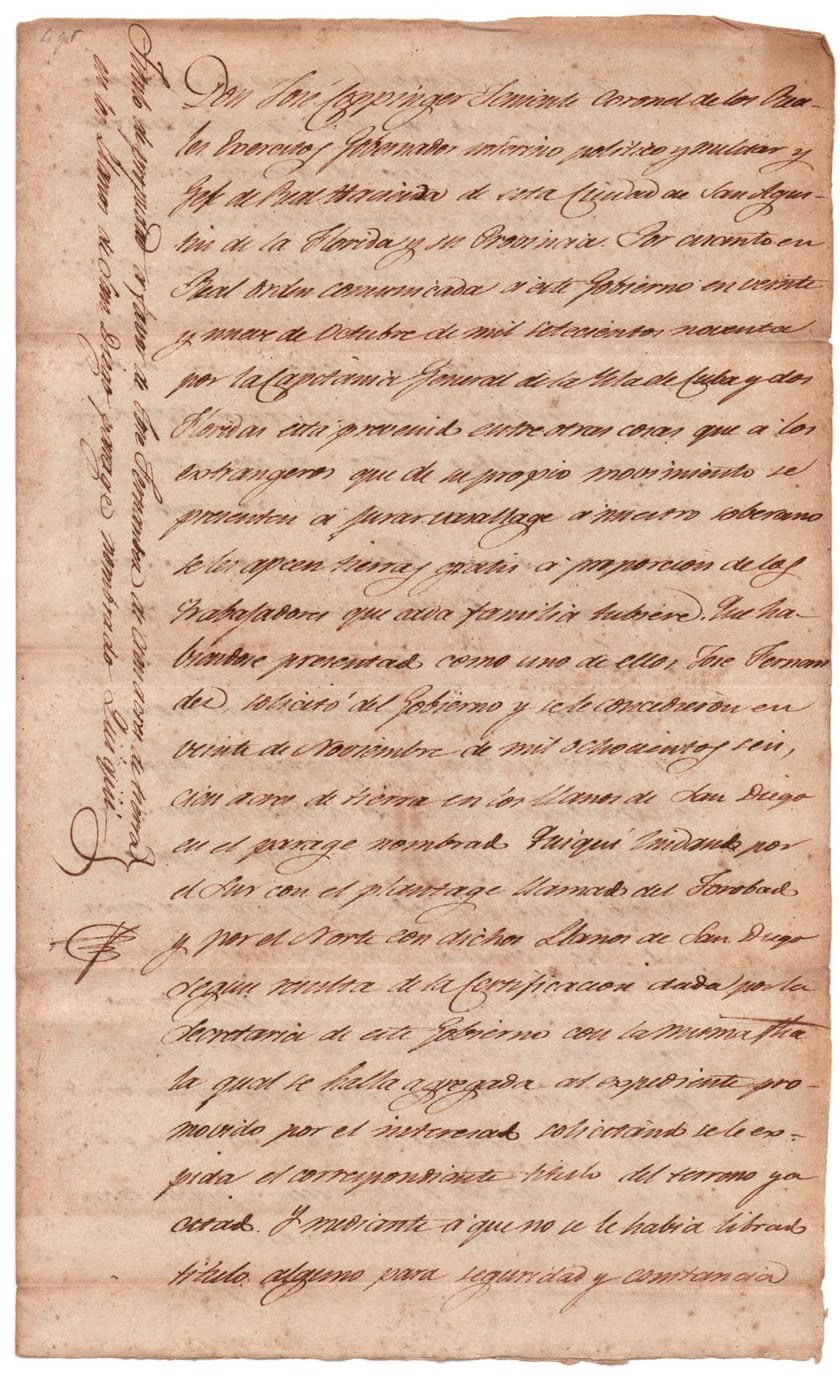 Titulo de propiedad a favor de Jose Fernandez de cien acres de tierra
en los Llanos de San Diego parage nombrado Quiqui
Don José Coppinger Teniente Coronel de los Rea-
les Exercitos Gobernador interino politico y militar y
Gefe de Real Hacienda de esta Ciudad de San Agus-
tin de la Florida y su Provincia. Por cuanto en
Real orden comunicada a este Gobierno en veinte
y nueve de Octubre de mil setecientos noventa
por la Capitania General de la Ysla de Cuba y dos
Floridas está prevenido entre otras cosas que a los
extrangeros que de su propio movimiento se
presenten a jurar vasallage a nuestro soberano
se les apcen tierras gratis a proporcion de los
trabajadores que cada familia tubiere. Que ha-
biendose presentado como uno de ellos Jose Fernan
dez, solicitó del Gobierno y se le concedieron en
veinte de Noviembre de mil ochocientos seis,
cien acres de tierra en los Llanos de San Diego
en el parage nombrado Quiqui lindando por
el Sur con el plantage llamado del
y por el Norte con dichos Llanos de San Diego
segun resulta de la Certificacion dada por la
Secretaria de este Gobierno con la misma fha
la qual se halla agregada al expediente pro-
movido por el interesado solicitando se le ex-
pida el correspondiente titulo del terreno ya
citado. Y mediante a que no se le habia librado
titulo alguno para seguridad y constancia